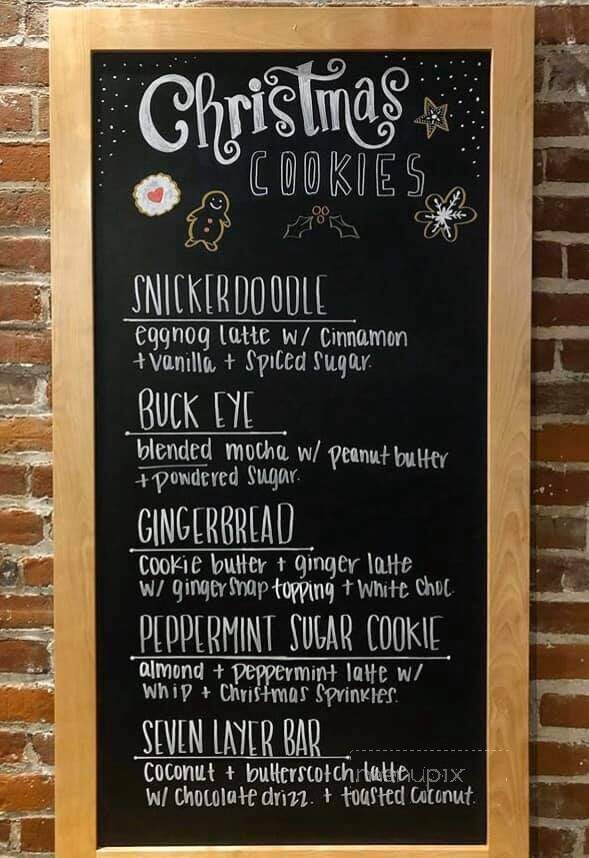 Christmas
COOKIES
SNICKERDOODLE
eggnog latte w/ cinnamon
+ vanilla + spiced sugar.
BUCK EYE
blended mocha w/ peanut butter
+ powdered sugar.
GINGERBREAD
cookie butter + ginger latte
w/ gingersnap topping + white choc.
PEPPERMINT SUGAR COOKIE
almond + peppermint latte w/
whip + Christmas Sprinkles.
SEVEN LAYER BAR
coconut + butterscotch latte
menupix
w/ chocolate drizz. + toasted coconut.